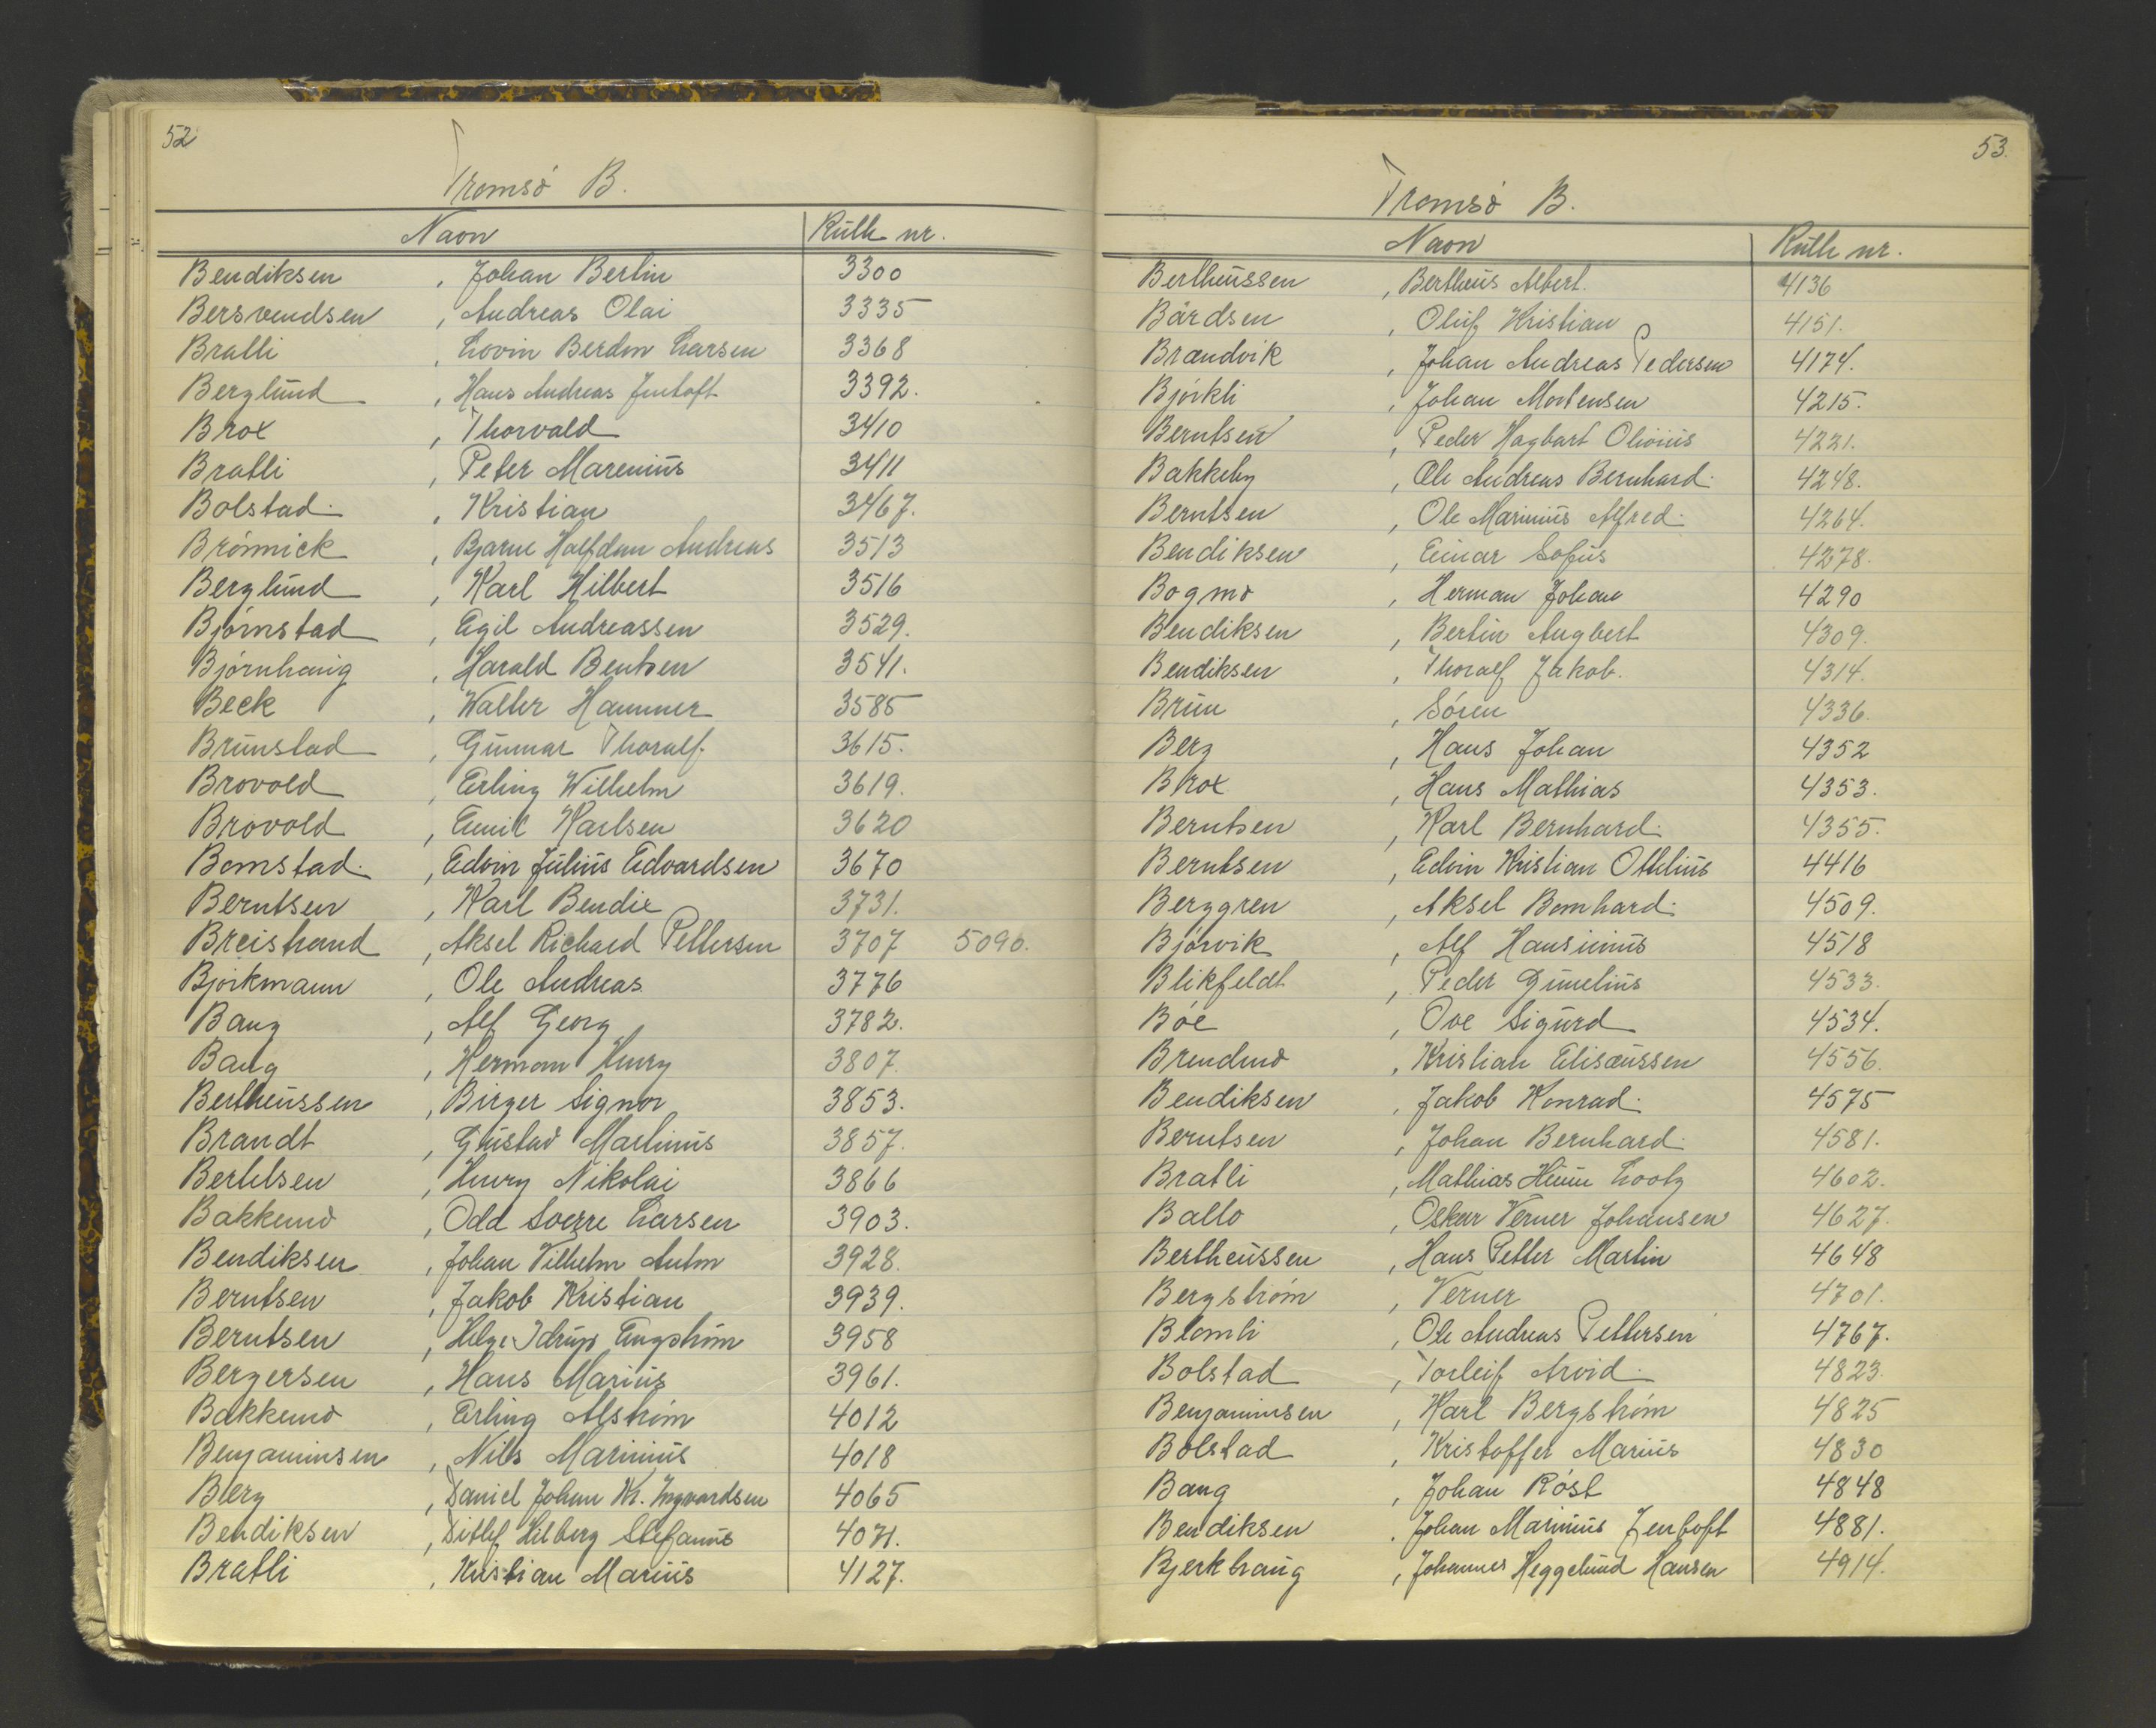 52
Tromsø B.
Navn Rulle nr.
Bendiksen , Johan Bertin 3300
Bersvendsen , Andreas Olai 3335
Bratli , Lovin Berdon Larsen 3368
Berglund , Hans Andreas Jentoft 3392.
Brox , Thorvald 3410
Bratli , Peter Marenius 3411
Bolstad , Kristian 3467.
Brönmick , Bjarne Halfdan Andreas 3513
Berglund , Karl Hilbert 3516
Björnstad , Egil Andreassen 3529.
Björnhaug , Harald Bentsen 3541.
Beck , Walter Hammer 3585
Brunstad , Gunnar Thoralf 3615.
Brovold , Erling Wilhelm 3619.
Brovold , Emil Karlsen 3620
Bomstad , Edvin Julius Edvardsen 3670
Berntsen , Karl Bendix 3731.
Breistrand , Aksel Richard Pettersen 3707 5090.
Björkmann , Ole Andreas 3776
Bang , Alf Georg 3782.
Bang , Herman Henry 3807.
Bertheussen , Birger Signor 3853.
Brandt , Gustav Martinus 3857.
Bertelsen , Henry Nikolai 3866
Bakkemo , Odd Sverre Larsen 3903.
Bendiksen , Johan Vilhelm Anton 3928.
Berntsen , Jakob Kristian 3939.
Berntsen , Helge Idrup Engström 3958
Bergersen , Hans Marius 3961.
Bakkemo , Erling Alström 4012
Benjaminsen , Nils Marinius 4018
Berg , Daniel Johan Kr. Ingvardsen 4065
Bendiksen , Ditlef Hilberg Stefanus 4071.
Bratli , Kristian Marius 4127.
53.
Tromsø B.
Navn Rulle nr.
Bertheussen , Bertheus Albert. 4136
Bårdsen , Oluf Kristian 4151.
Brandvik , Johan Andreas Pedersen 4174.
Björkli , Johan Mortensen 4215.
Berntsen , Peder Hagbart Olivius 4221.
Bakkeby , Ole Andreas Bernhard 4248.
Berntsen , Ole Marinius Alfred 4264.
Bendiksen , Einar Sofus 4278.
Bogmo , Herman Johan 4290
Bendiksen , Bertin Angbert 4309.
Bendiksen , Thoralf Jakob. 4314.
Brun , Sören 4336.
Berg , Hans Johan 4352
Brox , Hans Mathias 4353.
Berntsen , Karl Bernhard 4355.
Berntsen , Edvin Kristian Othelius 4416
Berggren , Aksel Bernhard 4509.
Björvik , Alf Hansinius 4518
Blikfeldt , Peder Gunelius 4533.
Böe , Ove Sigurd 4534.
Brendmo , Kristian Elisæussen 4556.
Bendiksen , Jakob Konrad 4575
Berntsen , Johan Bernhard 4581.
Bratli , Mathias Lootz 4602.
Ballo , Oskar Verner Johansen 4627.
Bertheussen , Hans Petter Martin 4648
Bergström , Verner 4701.
Blomli , Ole Andreas Pettersen 4767.
Bolstad , Torleif Arvid 4823.
Benjaminsen , Karl Bergström 4825
Bolstad , Kristoffer Marius 4830
Bang , Johan Röst 4848
Bendiksen , Johan Marinius Jentoft 4881.
Bjerkhaug , Johannes Heggelund Hansen 4914.